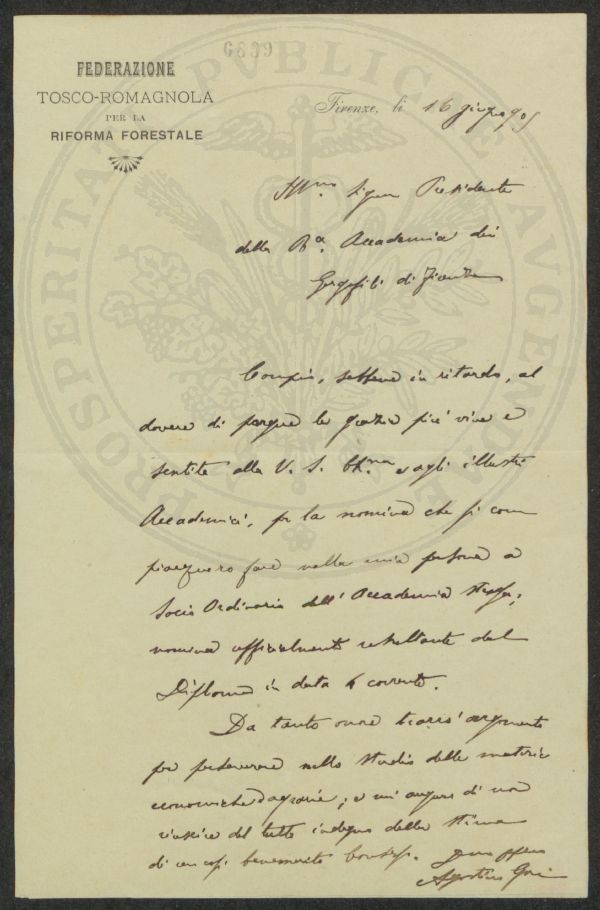 6639
FEDERAZIONE
TOSCO-ROMAGNOLA
PER LA
RIFORMA FORESTALE
Firenze, li 16 giugno 905
Ill.mo Signor Presidente
della R.a Accademia dei
Georgofili di Firenze
Compio, sebbene in ritardo, al
dovere di porgere le grazie più vive e
sentite alla V. S. Ill.ma e agli illustri
Accademici, per la nomina che si com
piacquero fare nella mia persona a
Socio Ordinario dell'Accademia stessa,
nomina ufficialmente risultante dal
Diploma in data 6 corrente.
Da tanto onore trarrò argomento
per perseverare nello studio delle materie
economiche ed agrarie; e mi auguro di non
riuscire del tutto indegno della stima
di un così benemerito Consesso.
Agostino
PROSPERITATI PVBLICAE AVGENDAE